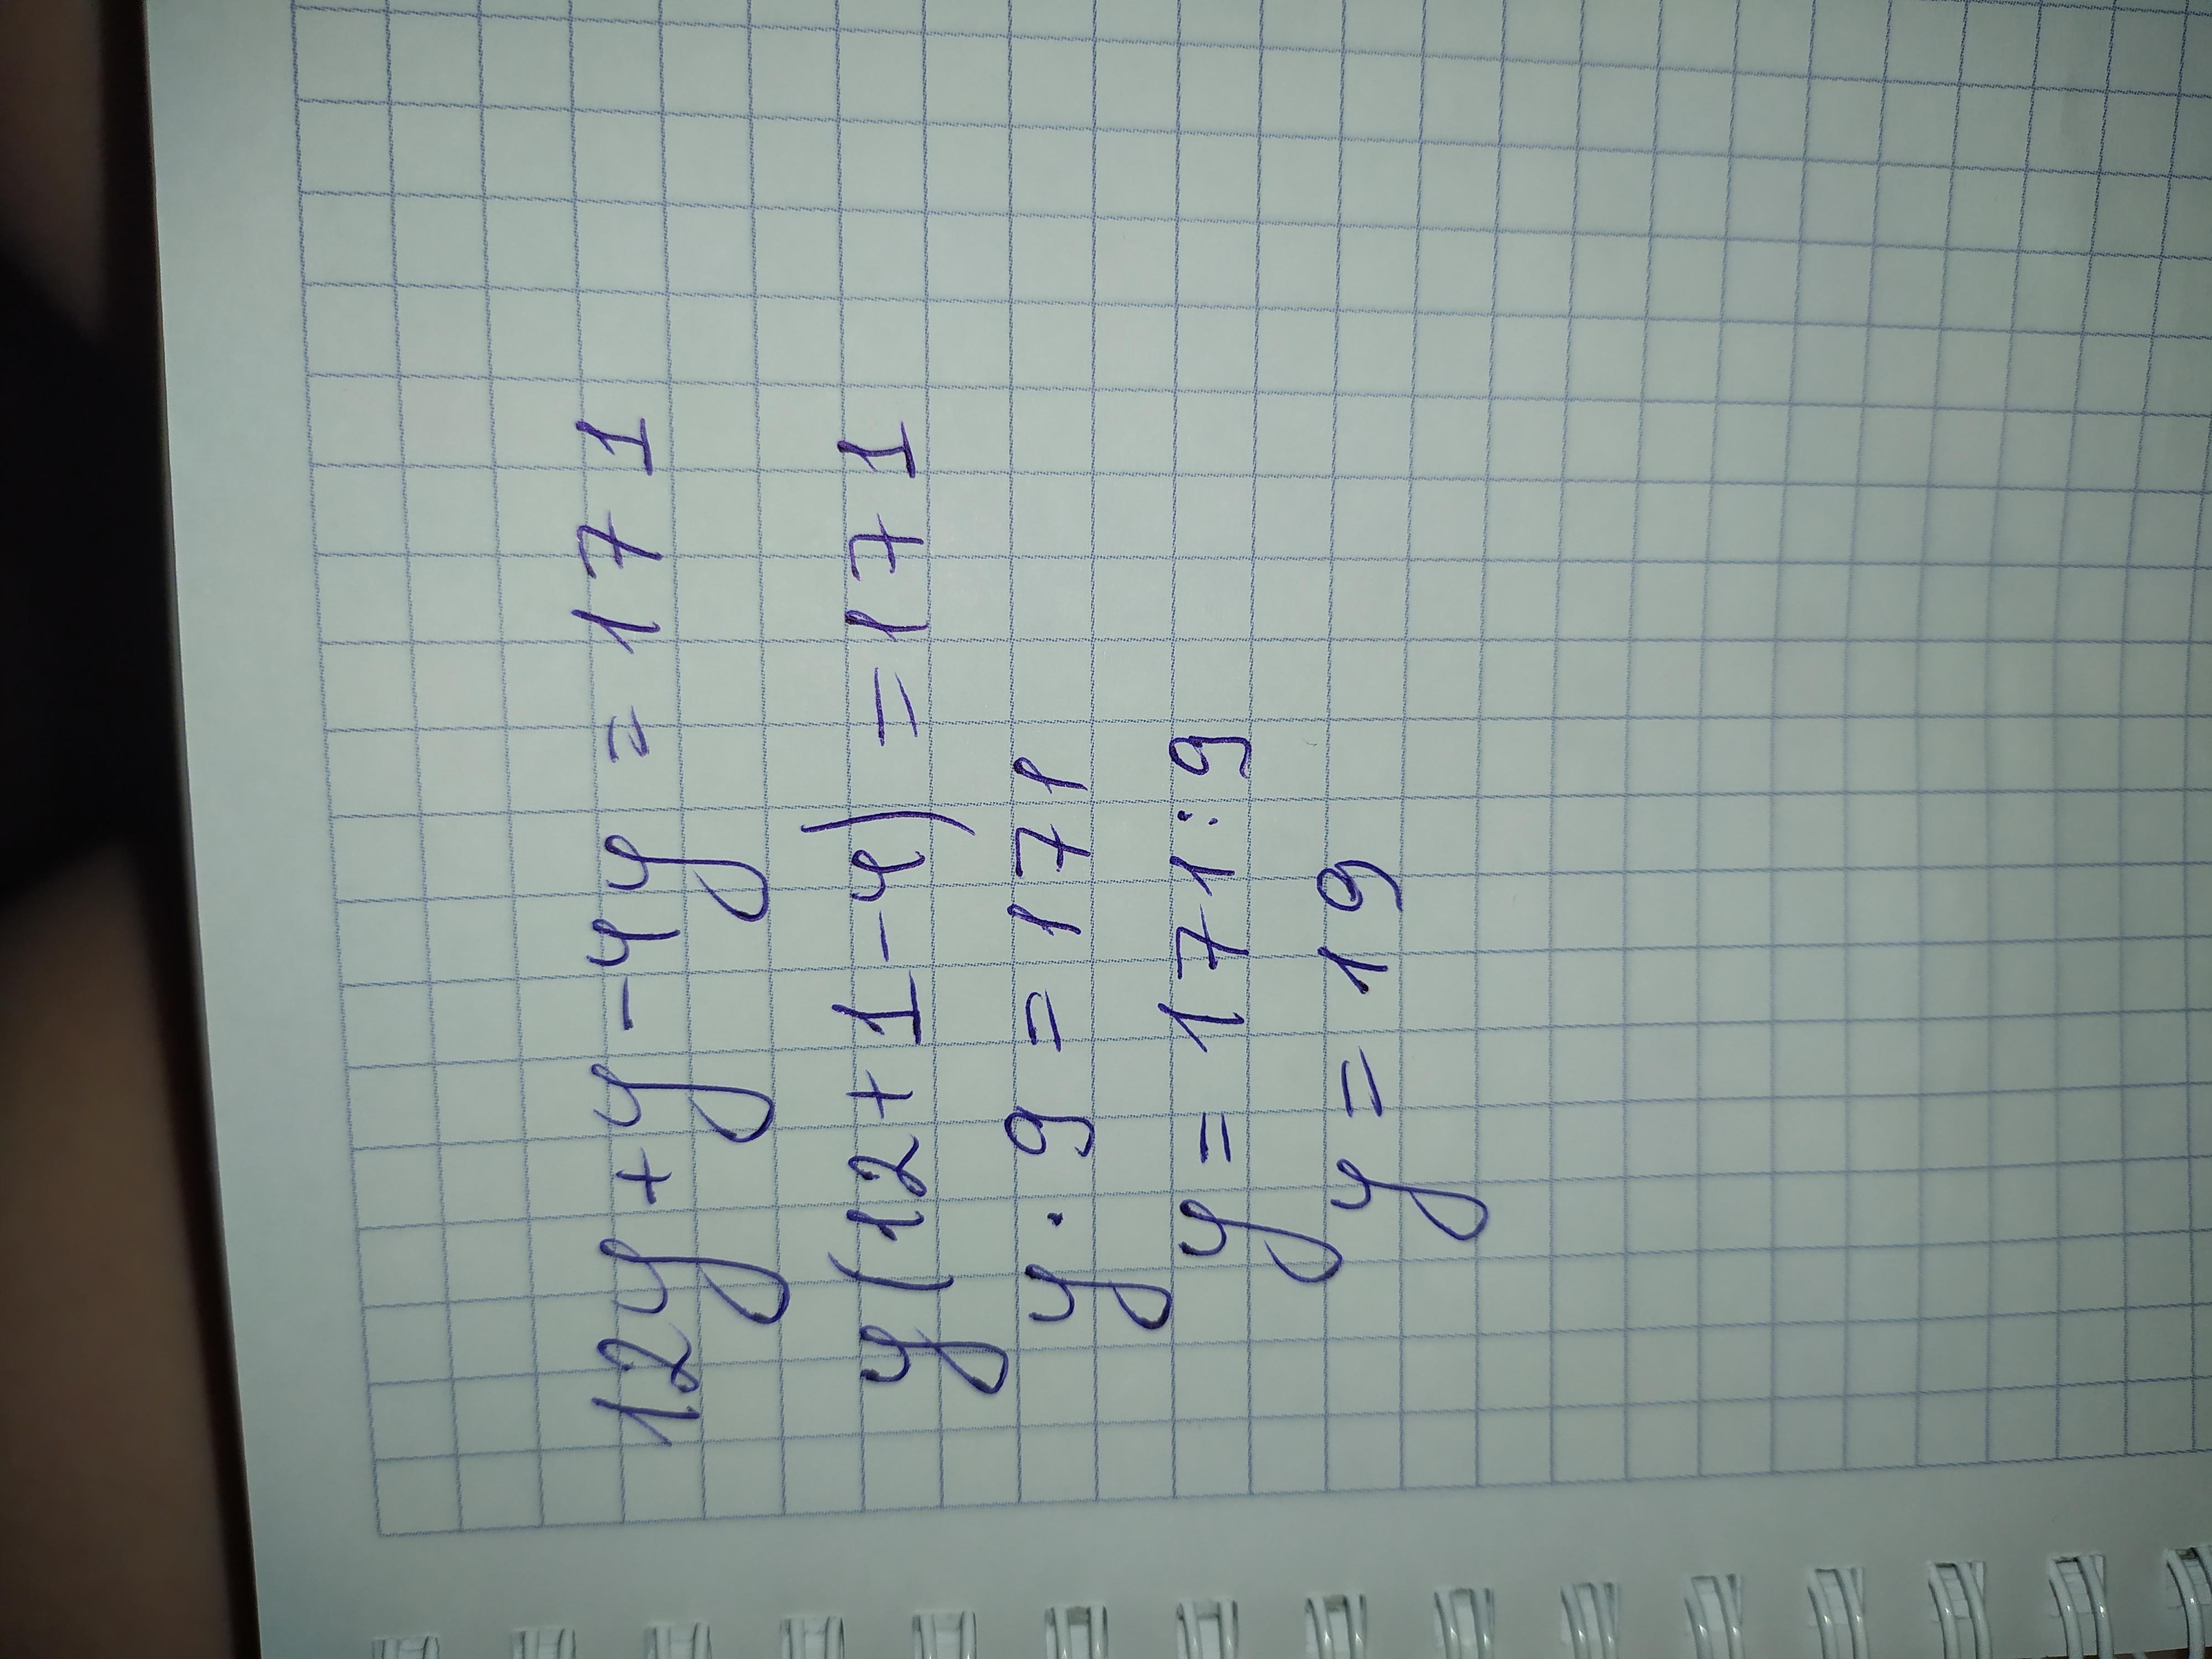 12y + y - 4y = 171
y (12 + 1 - 4) = 171
y · 9 = 171
y = 171 : 9
y = 19